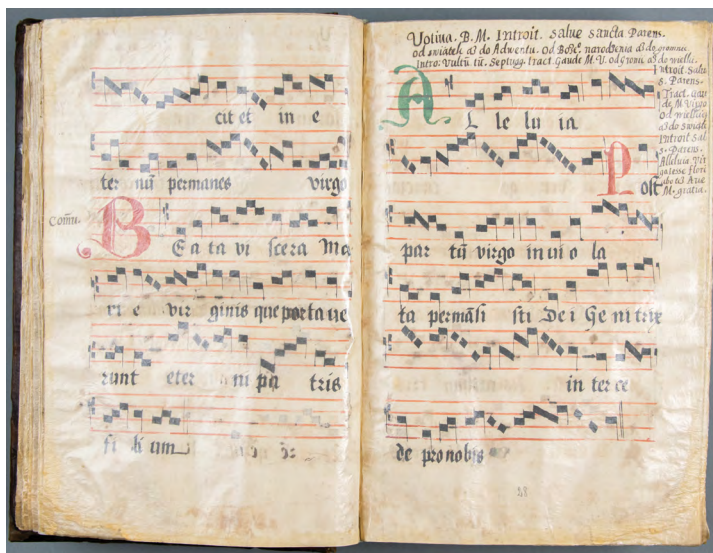 cit et in e
ter nũ permanes virgo
Com̃u.
BEa ta vi scera Ma
ri e vir ginis que porta ue
runt eter ni pa tris
fi li um
Votiua. B. M. Introit. Salue Sancta Parens.
od swiątek aż do Adwentu. Od Boże. narodzenia aż do gromnic
Intro: Vultũ tũ. Septuag. tract. Gaude M. V. od Gromi. aż do wielki.
Introit Salue
s. Parens.
Tract. Gau
de M. Virgo
Od wielkiey
aż do swiąte
Introit Sal
s. Parens.
Alleluia Vir
ga iesse flori
abo też Aue
M. gratia.
AL le lu ia
Post
par tũ virgo in ui o la
ta permãsi sti De i Ge ni trix
in ter ce
de pro nobis
28